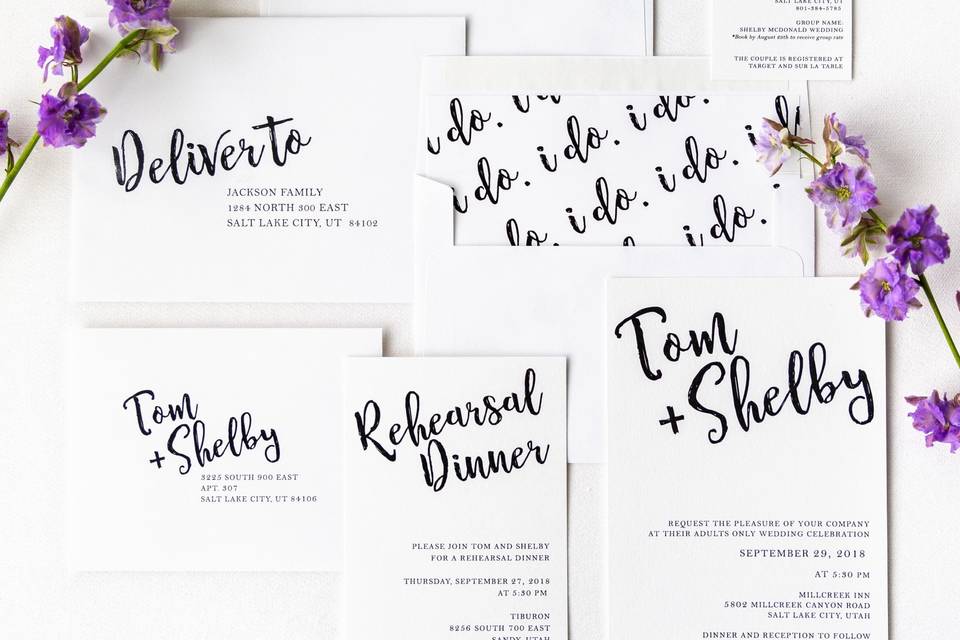 SALT LAKE CITY, UT
801-384-5785
GROUP NAME:
SHELBY MCDONALD WEDDING
*Book by August 29th to receive group rate
THE COUPLE IS REGISTERED AT
TARGET AND SUR LA TABLE
Deliver to
JACKSON FAMILY
1284 NORTH 300 EAST
SALT LAKE CITY, UT 84102
i do. i do. i do.
i do. i do. i do. i
i do. i do. i do.
i do. i do.
Tom
+ Shelby
3225 SOUTH 900 EAST
APT. 307
SALT LAKE CITY, UT 84106
Rehearsal
Dinner
PLEASE JOIN TOM AND SHELBY
FOR A REHEARSAL DINNER
THURSDAY, SEPTEMBER 27, 2018
AT 5:30 PM
TIBURON
8256 SOUTH 700 EAST
SANDY, UTAH
Tom
+ Shelby
REQUEST THE PLEASURE OF YOUR COMPANY
AT THEIR ADULTS ONLY WEDDING CELEBRATION
SEPTEMBER 29, 2018
AT 5:30 PM
MILLCREEK INN
5802 MILLCREEK CANYON ROAD
SALT LAKE CITY, UTAH
DINNER AND RECEPTION TO FOLLOW